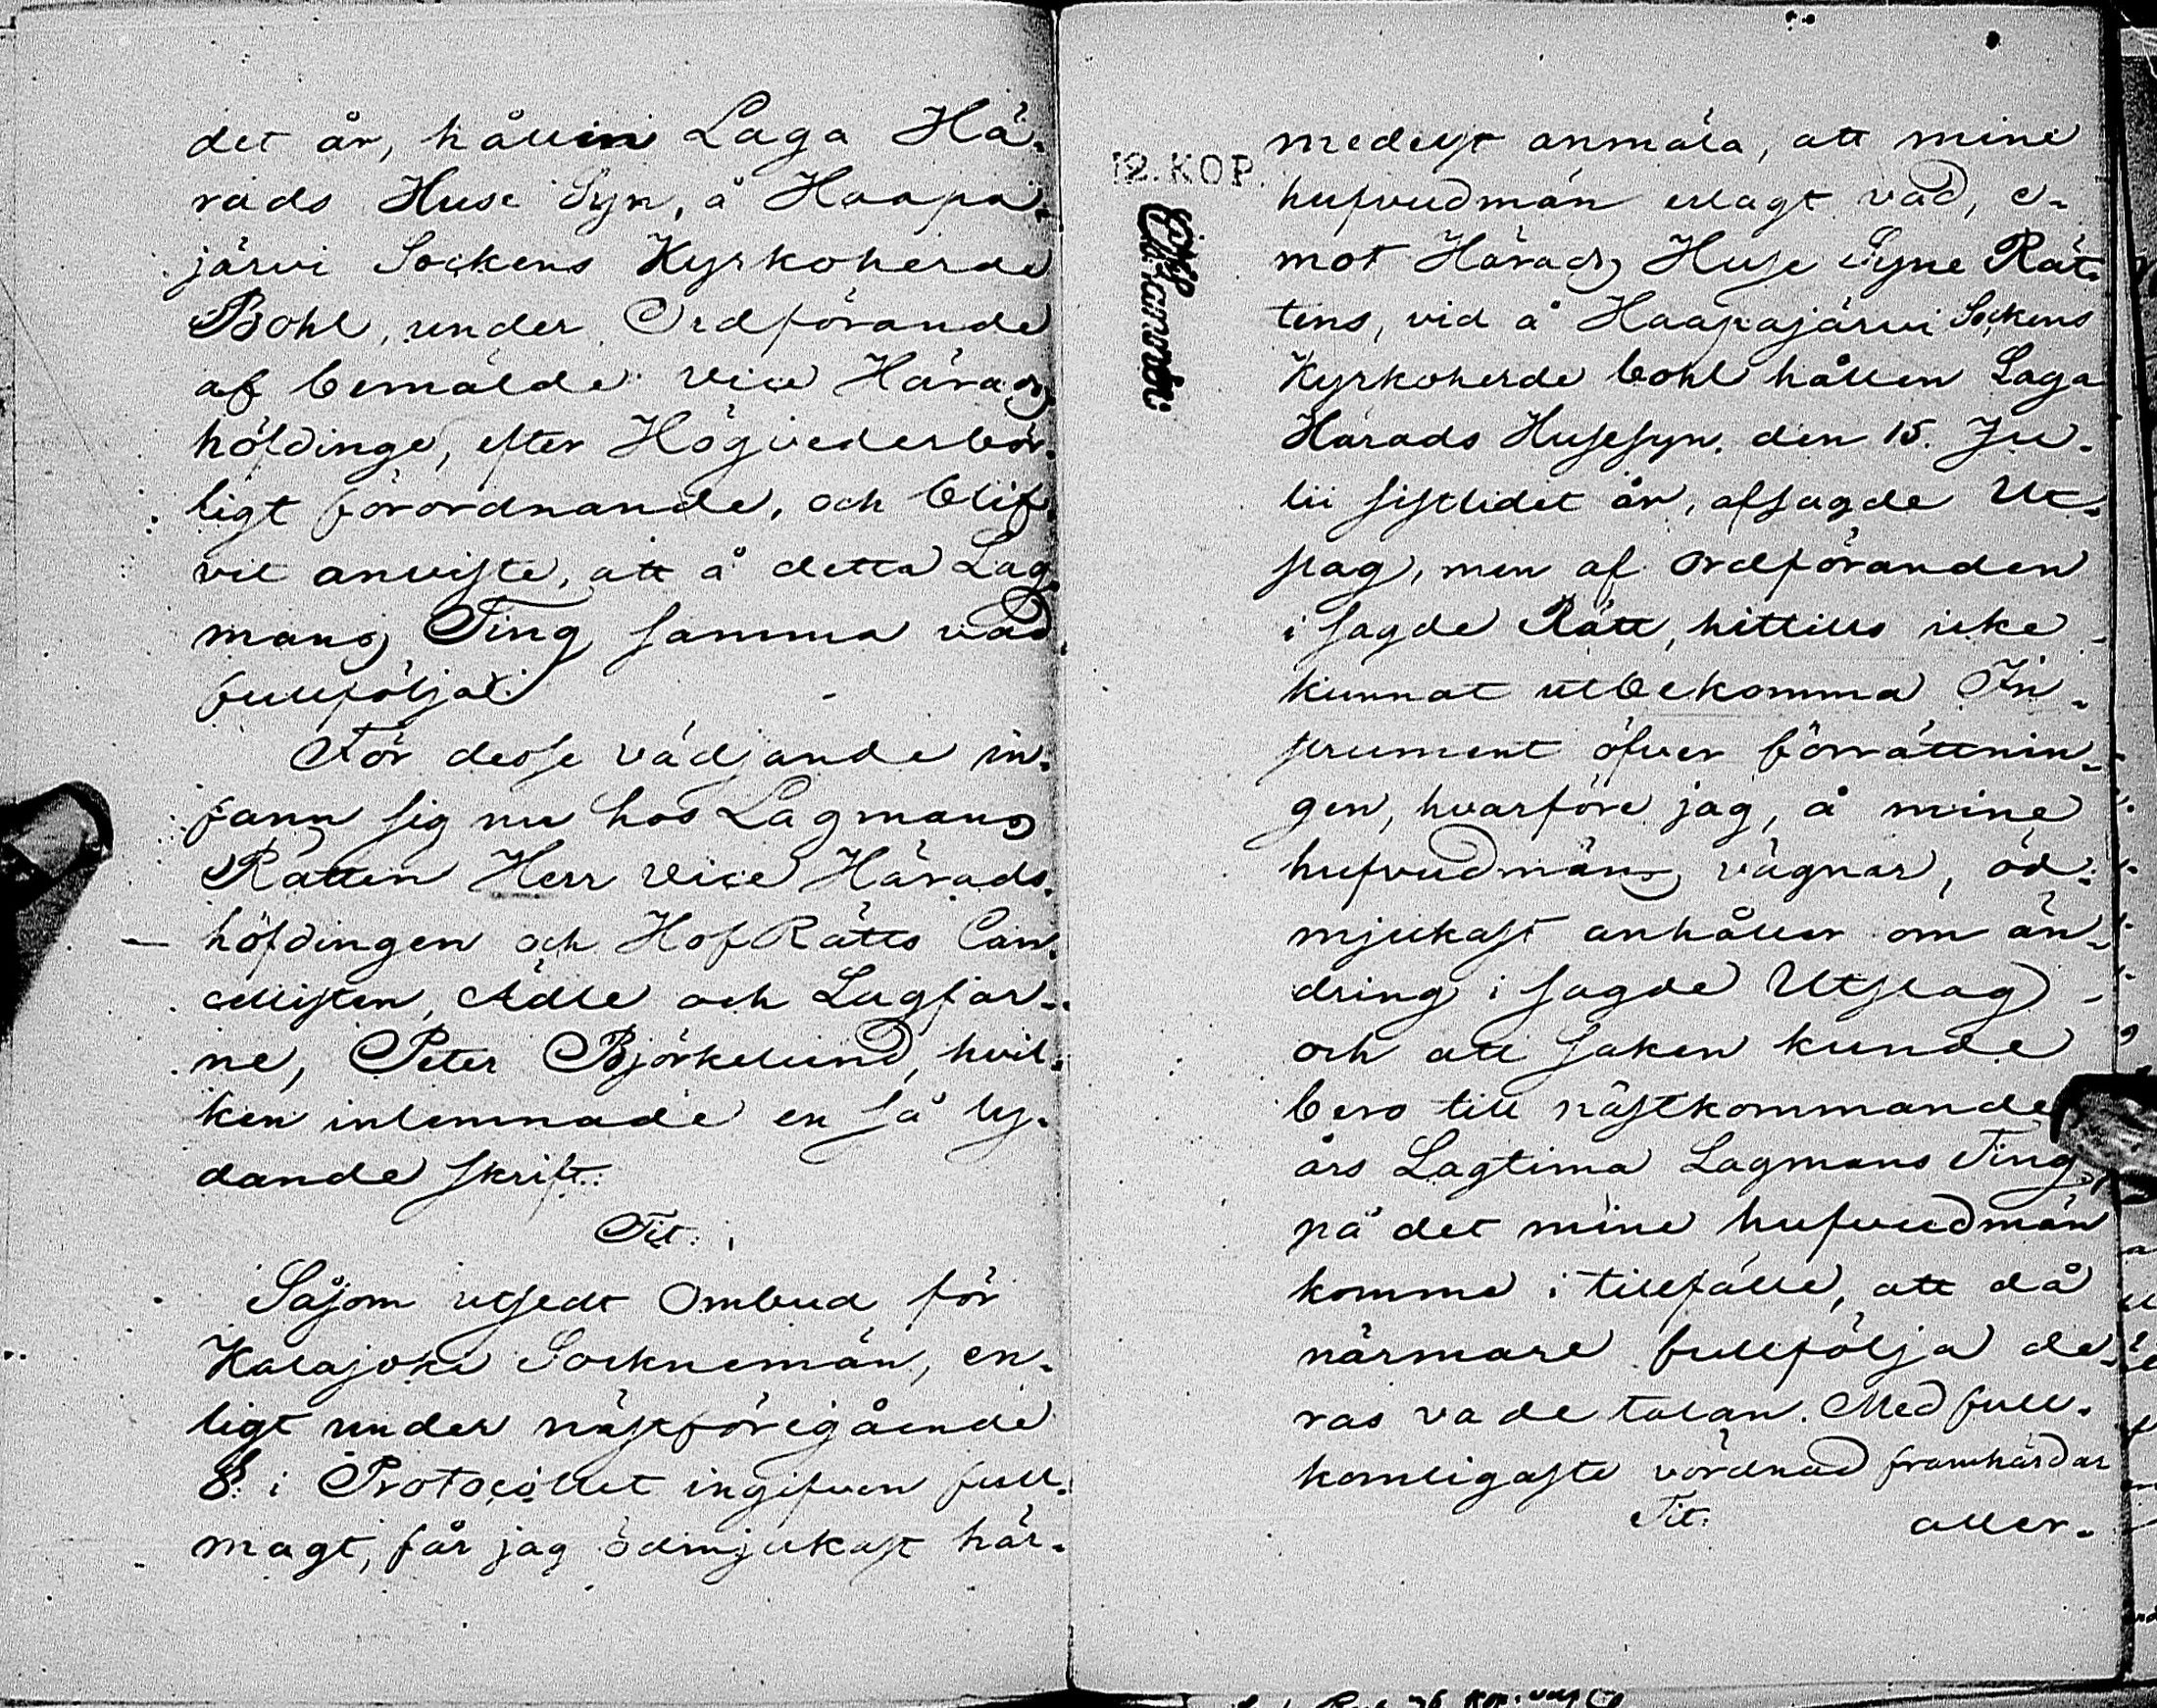 det år, hållin Laga Hä-
rads Huse Syn, å Haapa-
järvi Sockens Kyrkoherde
Bohl, under Ordförande
af bemälde vice Härads
höfdinge, efter Högvederbör-
ligt förordnande, och blif-
vit anviste, att å detta Lag-
mans Ting samma vad
fullfölja.
För desse vädjande in-
fann sig nu hos Lagmans
Rätten Herr Vice Härads-
höfdingen och HofRätts Can-
cellisten, Ädle och Lagfar-
ne, Peter Björkelund, hvil-
ken inlemnade en så ly-
dande skrift:
Tit:
Såsom utsedt Ombud för
Kalajoki Socknemän, en-
ligt under nästföregående
§ i Protocollet ingifven full-
magt, får jag ödmjukast här-
12.KOP.
medelst anmäla, att mine
hufvudmän erlagt vad, e-
mot Härads Huse Syne Rät-
tens, vid å Haapajärvi Sockens
Kyrkoherde bohl hållen Laga
Härads Husesyn, den 15. Ju-
lii sistlidet år, afsagde Ut-
slag, men af ordföranden
i sagde Rätt, hittills icke
kunnat utbekomma In-
strument öfver förrättnin-
gen, hvarföre jag, å mine
hufvudmäns vägnar, öd-
mjukast anhåller om än-
dring i sagde Utslag
och att saken kunde
bero till nästkommande
års Lagtima Lagmans Ting,
på det mine hufvudmän
komma i tillfälle, att då
närmare fullfölja de-
ras vade talan. Med full-
komligaste vördnad framhärdar
Tit: aller-